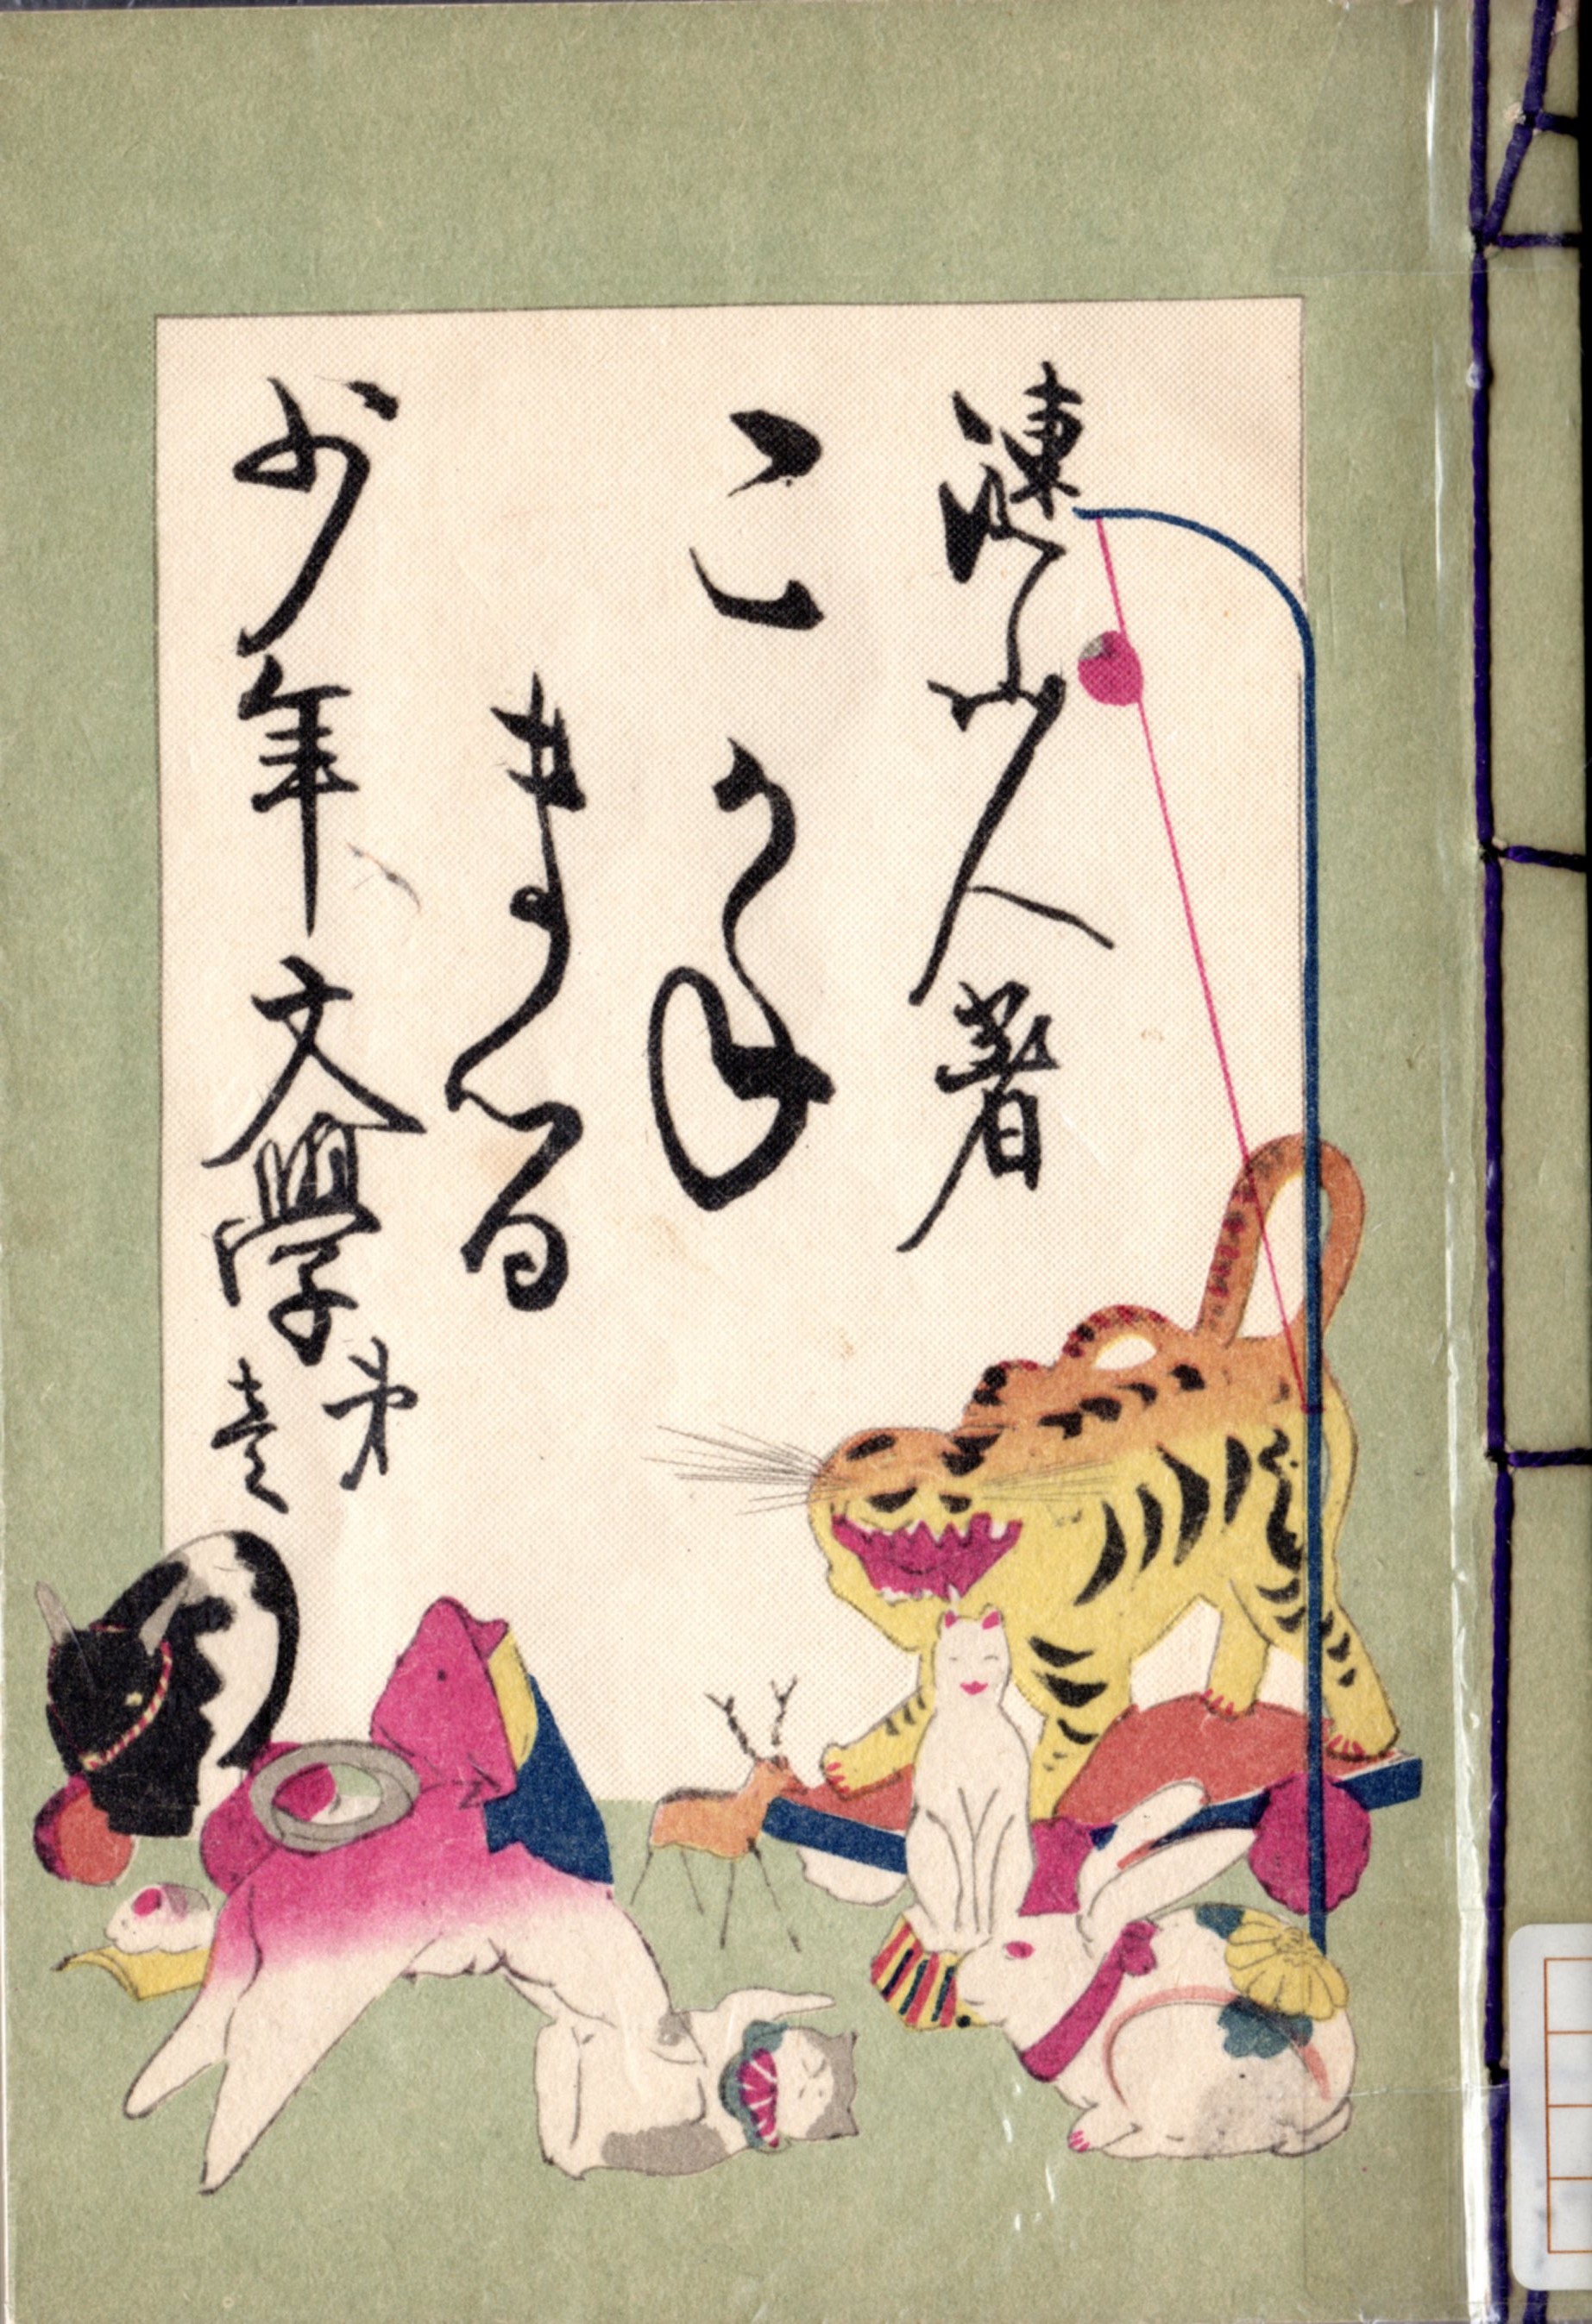 漣山人著
こがね
まる
少年文學
第
壱